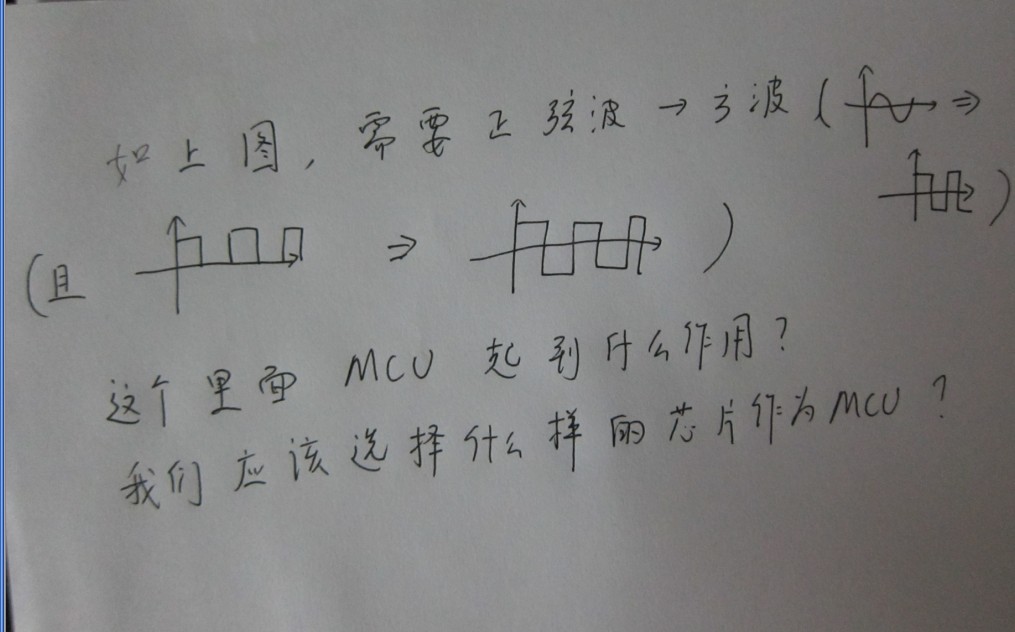 如上图，需要正弦波→方波（⇒
（且 ⇒ ）
这个里面MCU起到什么作用？
我们应该选择什么样的芯片作为MCU？